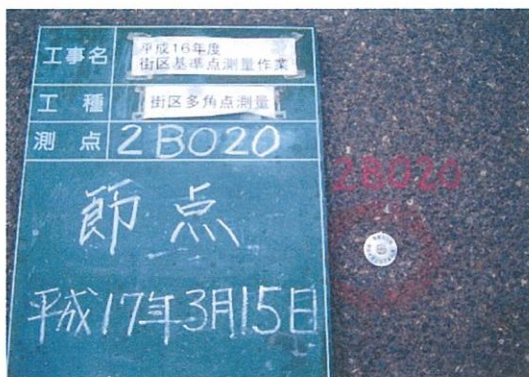 工事名
平成16年度
街区基準点測量作業
工種
街区多角点測量
測点
2B020
節点
平成17年3月15日
2B020